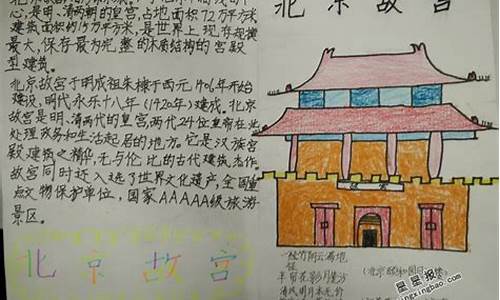 心,是明、清两朝的皇宫,占地面积72万平方米
建筑面积约15万平方米,是世界上现存规模
最大,保存最为完整的木质结构的宫殿
型建筑。
北京故宫于明成祖朱棣于西元1406年开始
建设,明代永乐十八年(1420年)建成,北京
故宫是明、清两朝的皇宫,两代24位皇帝在此
处理政务和生活起居的地方。它是汉族宫
殿建筑之精华,无与伦比的古代建筑杰作
故宫同时还入选了世界文化遗产,全国重
点文物保护单位,国家AAAAA级旅游
景区。
北京故宫
北京故宫
故宫
星星报
xingxingbao.com